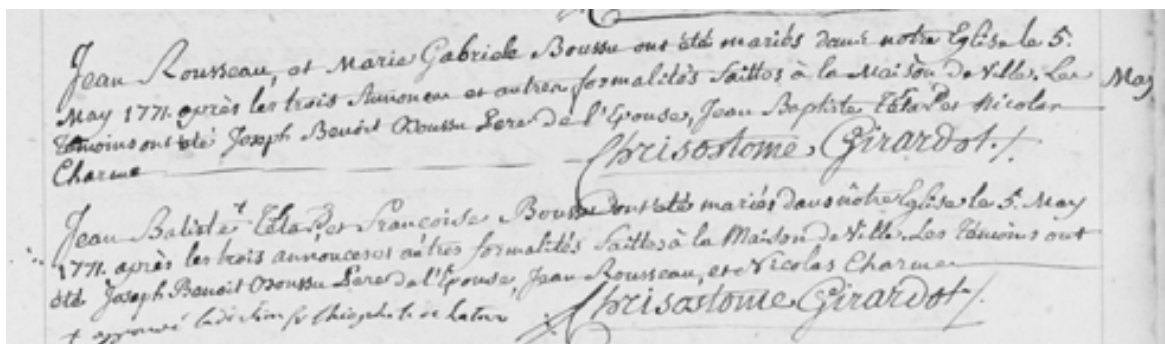 Jean Rousseau, et Marie Gabriele Boussu ont été mariés dans notre Eglise le 5.
May 1771. après les trois Annonces et autres formalités faittes à la Maison de Ville. Les
Témoins ont été Joseph Benoit Boussu Pere de l'Epouse, Jean Baptiste et Nicolas
Charme
Chrisostome Girardot
May
Jean Batiste et Françoise Boussu ont été mariés dans nôtre Eglise le 5. May
1771. après les trois annonces et autres formalités faittes à la Maison de Ville. Les Témoins ont
été Joseph Benoit Boussu Pere de l'Epouse, Jean Rousseau, et Nicolas Charme
Chrisostome Girardot